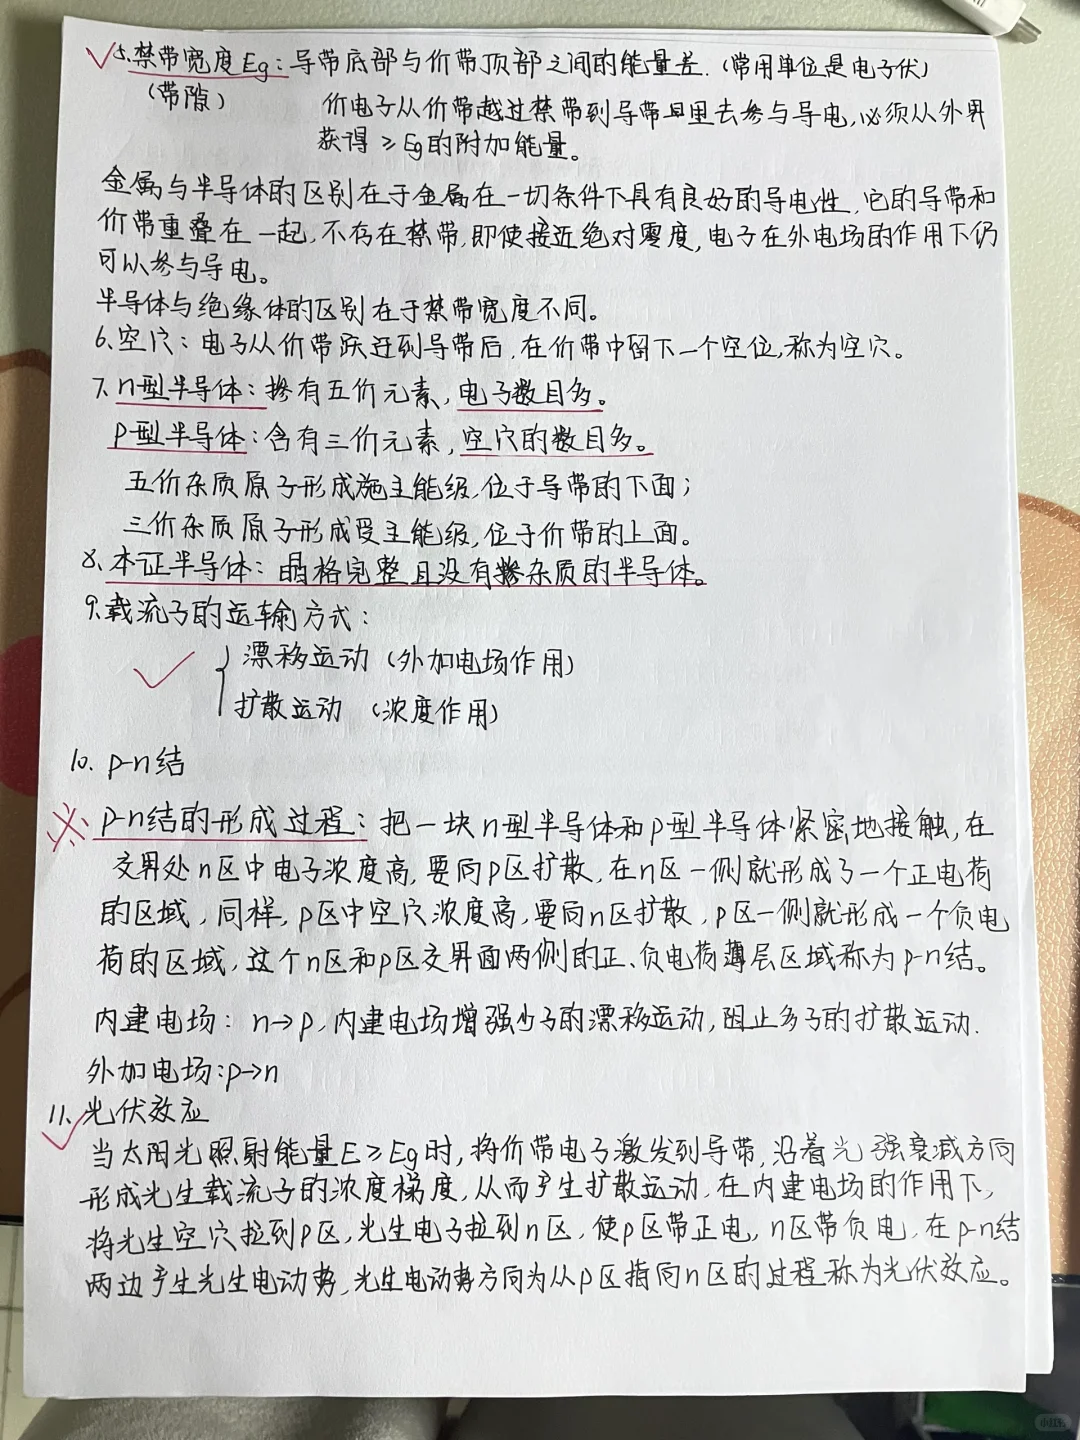 5、禁带宽度Eg：导带底部与价带顶部之间的能量差.（常用单位是电子伏）
（带隙）
价电子从价带越过禁带到导带里去参与导电,必须从外界
获得≥Eg的附加能量。
金属与半导体的区别在于金属在一切条件下具有良好的导电性,它的导带和
价带重叠在一起,不存在禁带,即使接近绝对零度,电子在外电场的作用下仍
可以参与导电。
半导体与绝缘体的区别在于禁带宽度不同。
6、空穴：电子从价带跃迁到导带后,在价带中留下一个空位,称为空穴。
7、n型半导体：掺有五价元素,电子数目多。
p型半导体：含有三价元素,空穴的数目多。
五价杂质原子形成施主能级,位于导带的下面；
三价杂质原子形成受主能级,位于价带的上面。
8、本证半导体：晶格完整且没有掺杂质的半导体。
9、载流子的运输方式：
漂移运动（外加电场作用）
扩散运动（浓度作用）
10、p-n结
※p-n结的形成过程：把一块n型半导体和p型半导体紧密地接触,在
交界处n区中电子浓度高,要向p区扩散,在n区一侧就形成了一个正电荷
的区域,同样,p区中空穴浓度高,要向n区扩散,p区一侧就形成一个负电
荷的区域,这个n区和p区交界面两侧的正、负电荷薄层区域称为p-n结。
内建电场：n→p,内建电场增强少子的漂移运动,阻止多子的扩散运动.
外加电场：p→n
11、光伏效应
当太阳光照射能量E≥Eg时,将价带电子激发到导带,沿着光强衰减方向
形成光生载流子的浓度梯度,从而产生扩散运动,在内建电场的作用下,
将光生空穴拉到p区,光生电子拉到n区,使p区带正电,n区带负电,在p-n结
两边产生光生电动势,光生电动势方向为从p区指向n区的过程称为光伏效应。